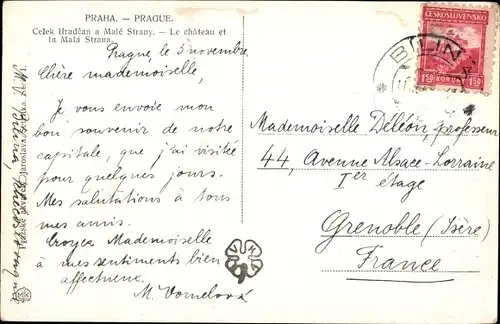 PRAHA. — PRAGUE.
Celek Hradčan a Malé Strany. — Le château et
la Malá Strana.
Prague, le 3 novembre
Chère mademoiselle,
Je vous envoie mon
bon souvenir de notre
capitale, que j'ai visitée
pour quelques jours.
Mes salutations à tous
mes amis.
Croyez Mademoiselle
à mes sentiments bien
affectueux.
M. Vomelová
ČESKOSLOVENSKO
1·50 KORUNY 1·50
BÍLIN
Mademoiselle Déléon, professeur
44, Avenue Alsace-Lorraine
Ier étage
Grenoble (Isère)
France